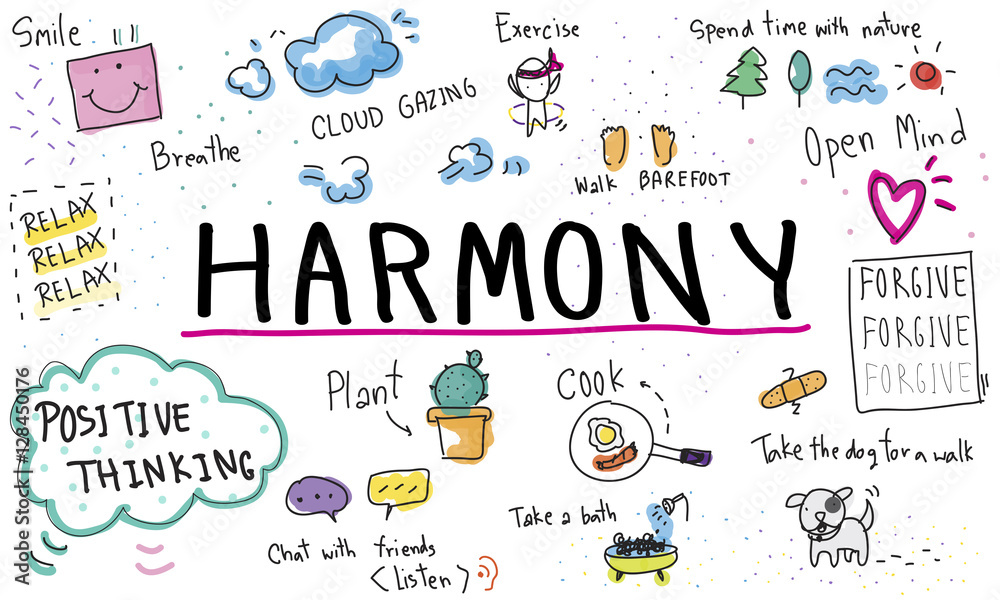 Smile
Exercise
Spend time with nature
CLOUD GAZING
Breathe
Open Mind
Walk BAREFOOT
RELAX
RELAX
RELAX
HARMONY
FORGIVE
FORGIVE
FORGIVE
POSITIVE
THINKING
Plant
Cook
Take the dog for a walk
Take a bath
Chat with friends
<Listen>
Adobe Stock | #128450176